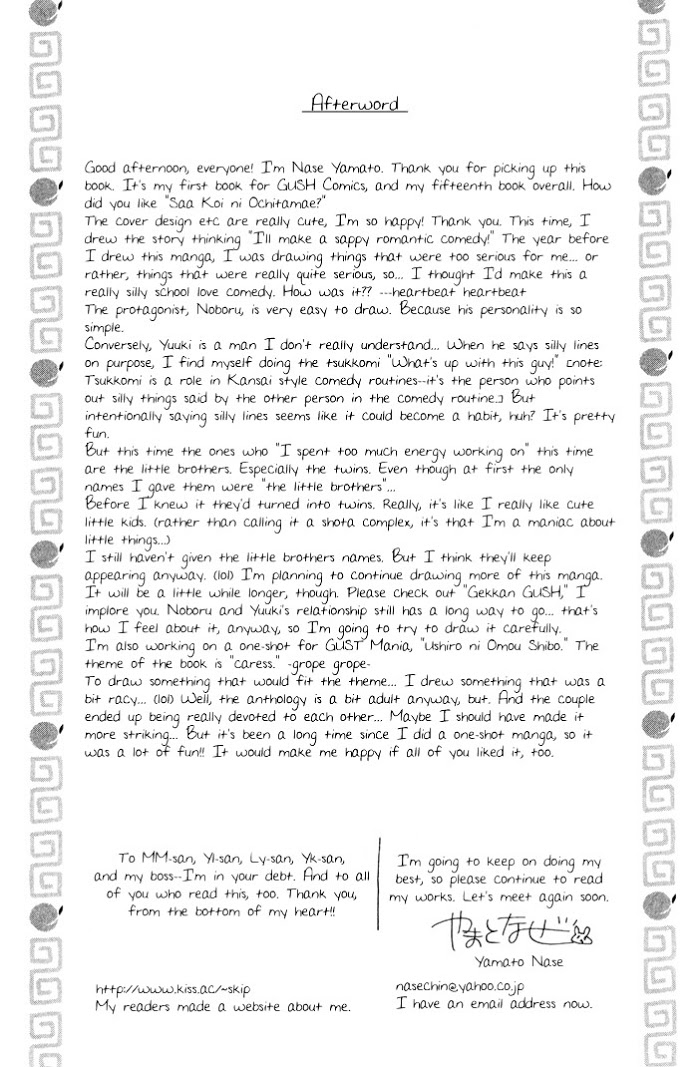 Afterword
Good afternoon, everyone! I'm Nase Yamato. Thank you for picking up this
book. It's my first book for GUSH Comics, and my fifteenth book overall. How
did you like "Saa Koi ni Ochitamae?"
The cover design etc are really cute, I'm so happy! Thank you. This time, I
drew the story thinking "I'll make a sappy romantic comedy!" The year before
I drew this manga, I was drawing things that were too serious for me... or
rather, things that were really quite serious, so... I thought I'd make this a
really silly school love comedy. How was it?? ---heartbeat heartbeat
The protagonist, Noboru, is very easy to draw. Because his personality is so
simple.
Conversely, Yuuki is a man I don't really understand... When he says silly lines
on purpose, I find myself doing the tsukkomi "What's up with this guy!" [note:
Tsukkomi is a role in Kansai style comedy routines--it's the person who points
out silly things said by the other person in the comedy routine.] But
intentionally saying silly lines seems like it could become a habit, huh? It's pretty
fun.
But this time the ones who "I spent too much energy working on" this time
are the little brothers. Especially the twins. Even though at first the only
names I gave them were "the little brothers"...
Before I knew it they'd turned into twins. Really, it's like I really like cute
little kids. (rather than calling it a shota complex, it's that I'm a maniac about
little things...)
I still haven't given the little brothers names. But I think they'll keep
appearing anyway. (lol) I'm planning to continue drawing more of this manga.
It will be a little while longer, though. Please check out "Gekkan GUSH," I
implore you. Noboru and Yuuki's relationship still has a long way to go... that's
how I feel about it, anyway, so I'm going to try to draw it carefully.
I'm also working on a one-shot for GUST Mania, "Ushiro ni Omou Shibo." The
theme of the book is "caress." -grope grope-
To draw something that would fit the theme... I drew something that was a
bit racy... (lol) Well, the anthology is a bit adult anyway, but. And the couple
ended up being really devoted to each other... Maybe I should have made it
more striking... But it's been a long time since I did a one-shot manga, so it
was a lot of fun!! It would make me happy if all of you liked it, too.
To MM-san, YI-san, Ly-san, Yk-san,
and my boss--I'm in your debt. And to all
of you who read this, too. Thank you,
from the bottom of my heart!!
I'm going to keep on doing my
best, so please continue to read
my works. Let's meet again soon.
やまとなぜ
Yamato Nase
http://www.kiss.ac/~skip
My readers made a website about me.
nasechin@yahoo.co.jp
I have an email address now.